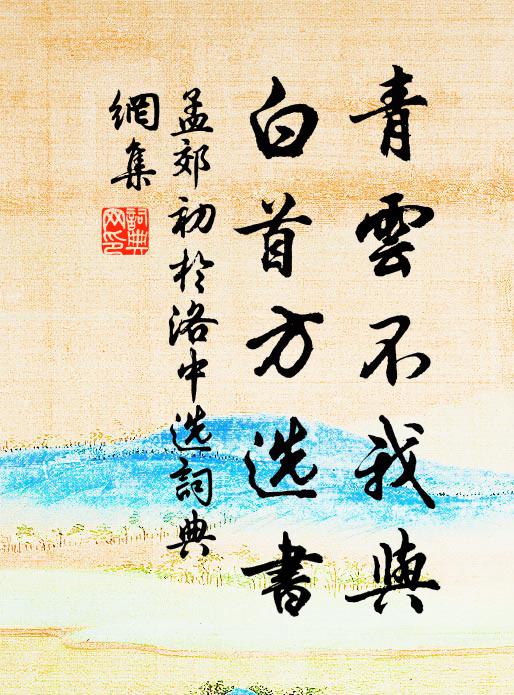 青雲不我與
白首方选書
孟郊初於洛中选詞典
網集
詞典
网印